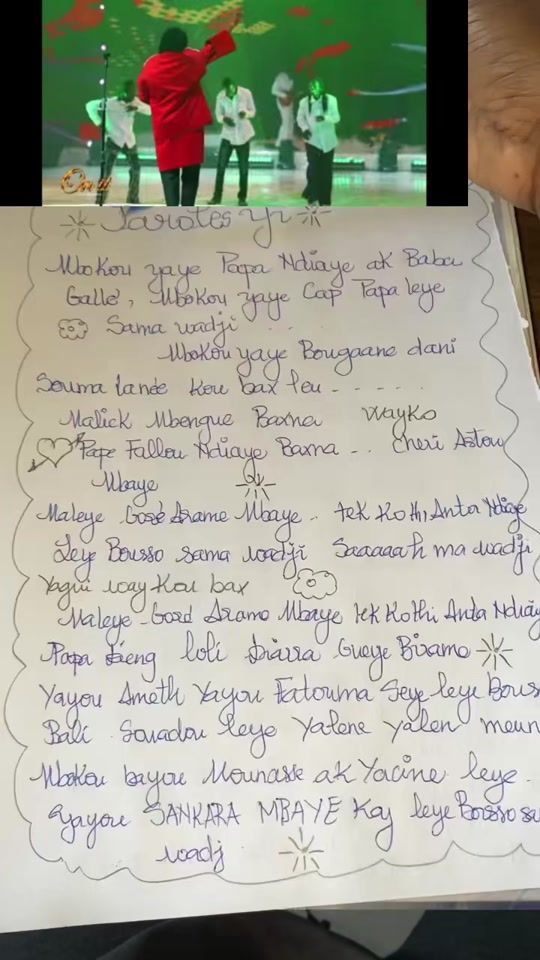 Paroles yi
Mbokou yaye Papa Ndiaye ak Baba
Gallé, Mbokou yaye Cap Papa leye
Sama wadji . . .
Mbokou yaye Bougaane dani
Souma lanée kou bax leu - - - - - .
Malick Mbengue Baxna wayko
Pape Fallou Ndiaye Baxna - . . cheri Astou
Mbaye
Maleye Arame Mbaye . . tek Kothi Anta Ndiaye
Leye Bousso sama wadji Saaaaah ma wadji
Yagui way Kou bax
Maleye Arame Mbaye tek Kothi Anta Ndiay
Papa Dieng loli Diarra Gueye Birame
Yayou Ameth Yayou Fatouma Seye leye Bous
Bali Souadou leye Yalene yalen meun
Mbokou bayou Mounasse ak Yacine leye .
Yayou SANKARA MBAYE Kay leye Bousso sa
wadj